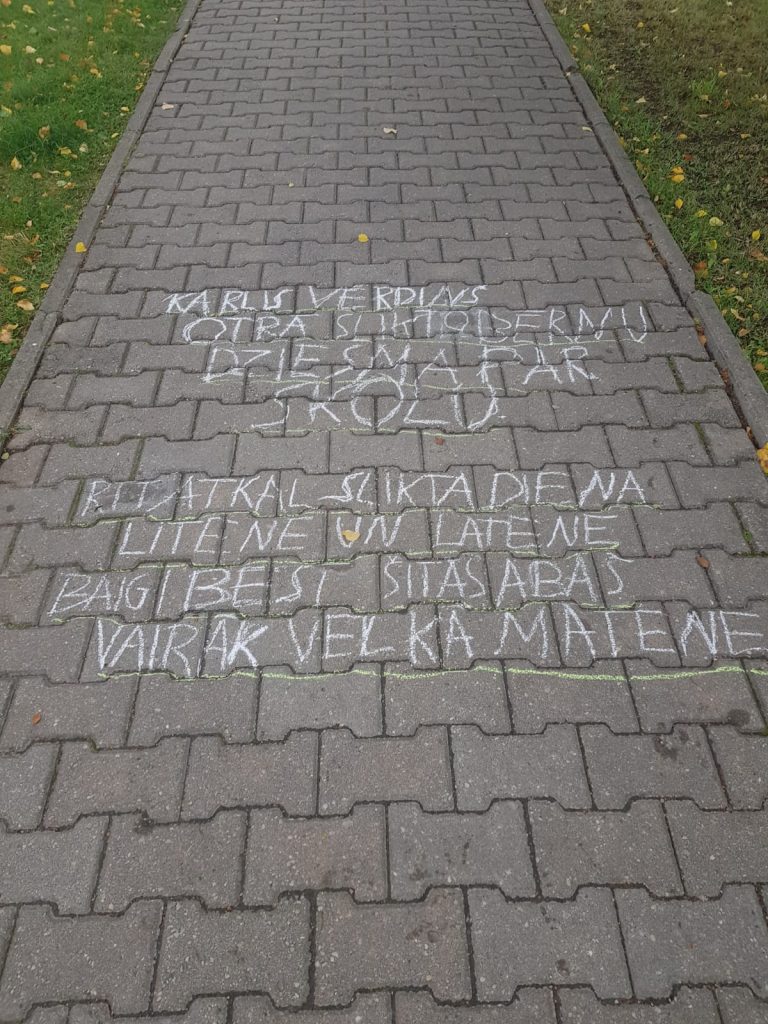 KARLIS VERDIŅS
OTRA SLIKTO BĒRNU
DZIESMA PAR
SKOLU
RĪT ATKAL SLIKTA DIENA
LITENE UN LATENE
BAIGI BEST ŠITĀS ABĀS
VAIRĀK VEL KĀ MATENE